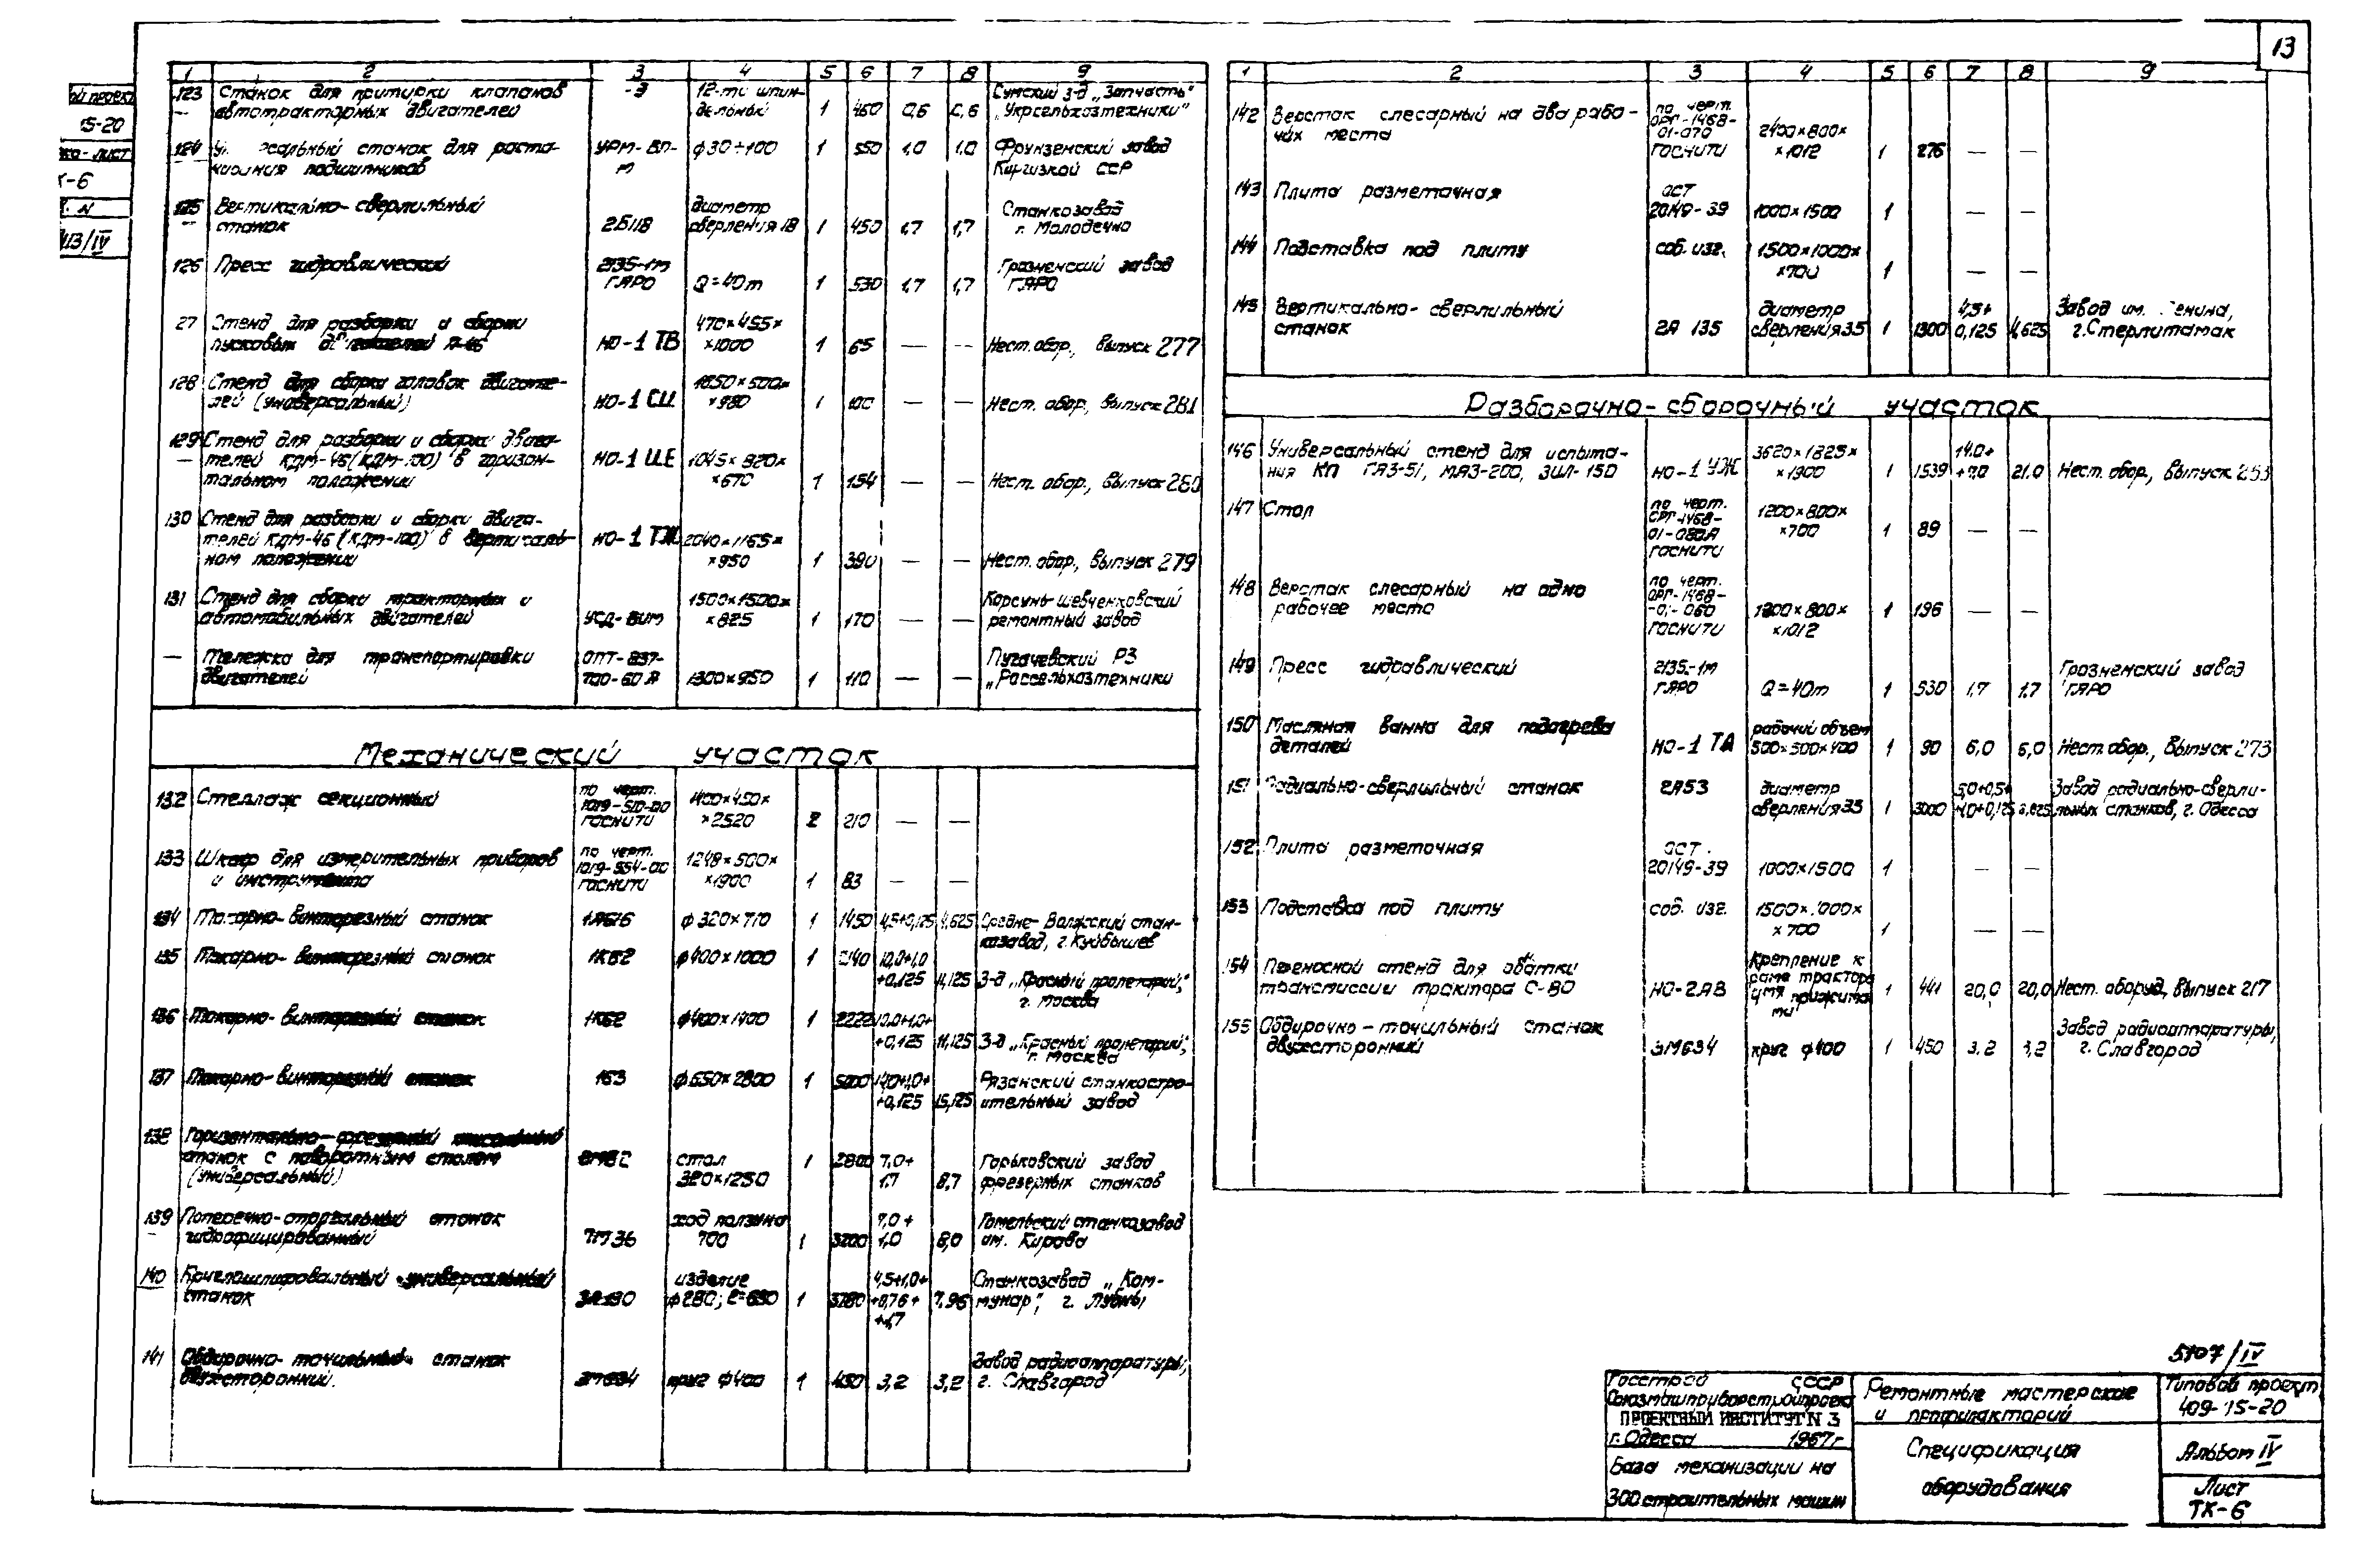 13
ой проект
15-20
ка-лист
К-6
113/IV
1 2 3 4 5 6 7 8 9
123 Станок для притирки клапанов -Э 12-ти шпин- Сумский з-д „Запчасть"
автотракторных двигателей дельный 1 450 0,6 0,6 „Укрсельхозтехники"
124 сальный станок для раста- УРМ-ВП- ф30÷100 1 550 1.0 1.0 Фрунзенский завод
чивания подшипников м Киргизкой ССР
125 Вертикально-сверлильный диаметр Станкозавод
станок 2Б118 сверления 18 1 450 1,7 1,7 г. Молодечно
126 Пресс гидравлический 2135-1м Грозненский завод
ГАРО Q=40т 1 530 1,7 1,7 ГАРО
27 Стенд для разборки и сборки 470×455×
пусковых НО-1 ТВ ×1000 1 65 — — Нест. обор., Выпуск 277
128 Стенд для сборки головок двигате- 1650×500×
лей (универсальный) НО-1 СЦ ×980 1 100 — — Нест. обор, Выпуск 281
129 Стенд для разборки и сборки двига-
телей КДМ-46 (КДМ-100) в горизон- НО-1 ЦЕ 1045×820×
тальном положении ×670 1 154 — — Нест. обор., Выпуск 280
130 Стенд для разборки и сборки двига-
телей КДМ-46 (КДМ-100) в вертикаль- НО-1 ТЖ 2040×1165×
ном положении ×950 1 390 — — Нест. обор., Выпуск 279
131 Стенд для сборки тракторных и 1500×1500× Корсунь-Шевченковский
автомобильных двигателей УСД-ВИМ ×825 1 170 — — ремонтный завод
— Тележка для транспортировки ОПТ-837- Пугачевский РЗ
двигателей 700-60А 1300×950 1 110 — — „Россельхозтехники
Механический участок
132 Стеллаж секционный по черт. 1400×450×
1019-510-00
ГОСНИТИ ×2520 2 210 — —
133 Шкаф для измерительных приборов по черт. 1248×500×
1019-554-00
и инструмента ГОСНИТИ ×1900 1 83 — —
134 Токарно-винторезный станок 1А616 ф320×710 1 1450 4,5+0,125 4,625 Средне-Волжский стан-
козавод, г. Куйбышев
135 Токарно-винторезный станок 1К62 ф400×1000 1 2140 10,0+1,0
+0,125 11,125 З-д „Красный пролетарий",
г. Москва
136 Токарно-винторезный станок 1К62 ф400×1400 1 2222 10,0+1,0+
+0,125 11,125 З-д „Красный пролетарий",
г. Москва
137 Токарно-винторезный станок 163 ф650×2800 1 14,0+1,0+ Рязанский станкостро-
+0,125 15,125 ительный завод
138 Горизонтально-фрезерный консольный
станок с поворотным столом стол 1 2800 7,0+ Горьковский завод
(универсальный) 320×1250 1.7 8,7 фрезерных станков
139 Поперечно-строгальный станок ход ползуна 7,0+ Гомельский станкозавод
гидрофицированный 7М36 700 1 3200 1,0 8,0 им. Кирова
140 Круглошлифовальный универсальный изделие 4,5+1,0+ Станкозавод „Ком-
станок ф280; 1 +0,76+ 7,96 мунар", г. Лубны
+1,7
141 Обдирочно-точильный станок Завод радиоаппаратуры,
двухсторонний. 3М634 круг ф400 1 450 3,2 3,2 г. Славгород
1 2 3 4 5 6 7 8 9
142 Верстак слесарный на два рабо- по черт.
ОРГ-1468-
чих места 01-070 2400×800×
ГОСНИТИ ×1012 1 276 — —
143 Плита разметочная ОСТ
20149-39 1000×1500 1 — —
144 Подставка под плиту соб. изг. 1500×1000×
×700 1 — —
145 Вертикально-сверлильный диаметр 4,5+ Завод им. Ленина,
станок 2А 135 сверления 35 1 1300 0,125 4,625 г. Стерлитамак
Разборочно-сборочный участок
146 Универсальный стенд для испыта- 3620×1825× 14.0+
ния КП ГАЗ-51, МАЗ-200, ЗИЛ-150 НО-1 УЖ ×1900 1 1539 +7,0 21.0 Нест. обор., Выпуск 253
147 Стол по черт. 1200×800×
ОРГ-1468-
01-080А ×700 1 89 — —
ГОСНИТИ
148 Верстак слесарный на одно по черт.
ОРГ-1468-
рабочее место -01-060 1200×800× 1 196 — —
ГОСНИТИ ×1012
149 Пресс гидравлический 2135-1м Грозненский завод
ГАРО Q=40т 1 530 1.7 1.7 ГАРО
150 Масляная ванна для подогрева рабочий объем
деталей НО-1 ТА 500×300×400 1 90 6,0 6,0 Нест. обор., Выпуск 273
151 Радиально-сверлильный станок 2А53 диаметр Завод радиально-сверли-
сверления 35 1 3000 льных станков, г. Одесса
152 Плита разметочная ОСТ
20149-39 1000×1500 1 — —
153 Подставка под плиту соб. изг. 1500×1000×
×700 1 — —
154 Переносной стенд для обкатки Крепление к
трансмиссии трактора С-80 НО-2АВ раме трактора 1 441 20,0 20,0 Нест. оборуд, Выпуск 217
155 Обдирочно-точильный станок Завод радиоаппаратуры,
двухсторонний 3М634 круг ф400 1 450 3,2 3,2 г. Славгород
5107/IV
Госстрой СССР
Союзмашприборстройпроект
ПРОЕКТНЫЙ ИНСТИТУТ N 3
г. Одесса 1967г
База механизации на
300 строительных машин
Ремонтные мастерские
и профилакторий
Спецификация
оборудования
Типовой проект
409-15-20
Альбом IV
Лист
ТК-6